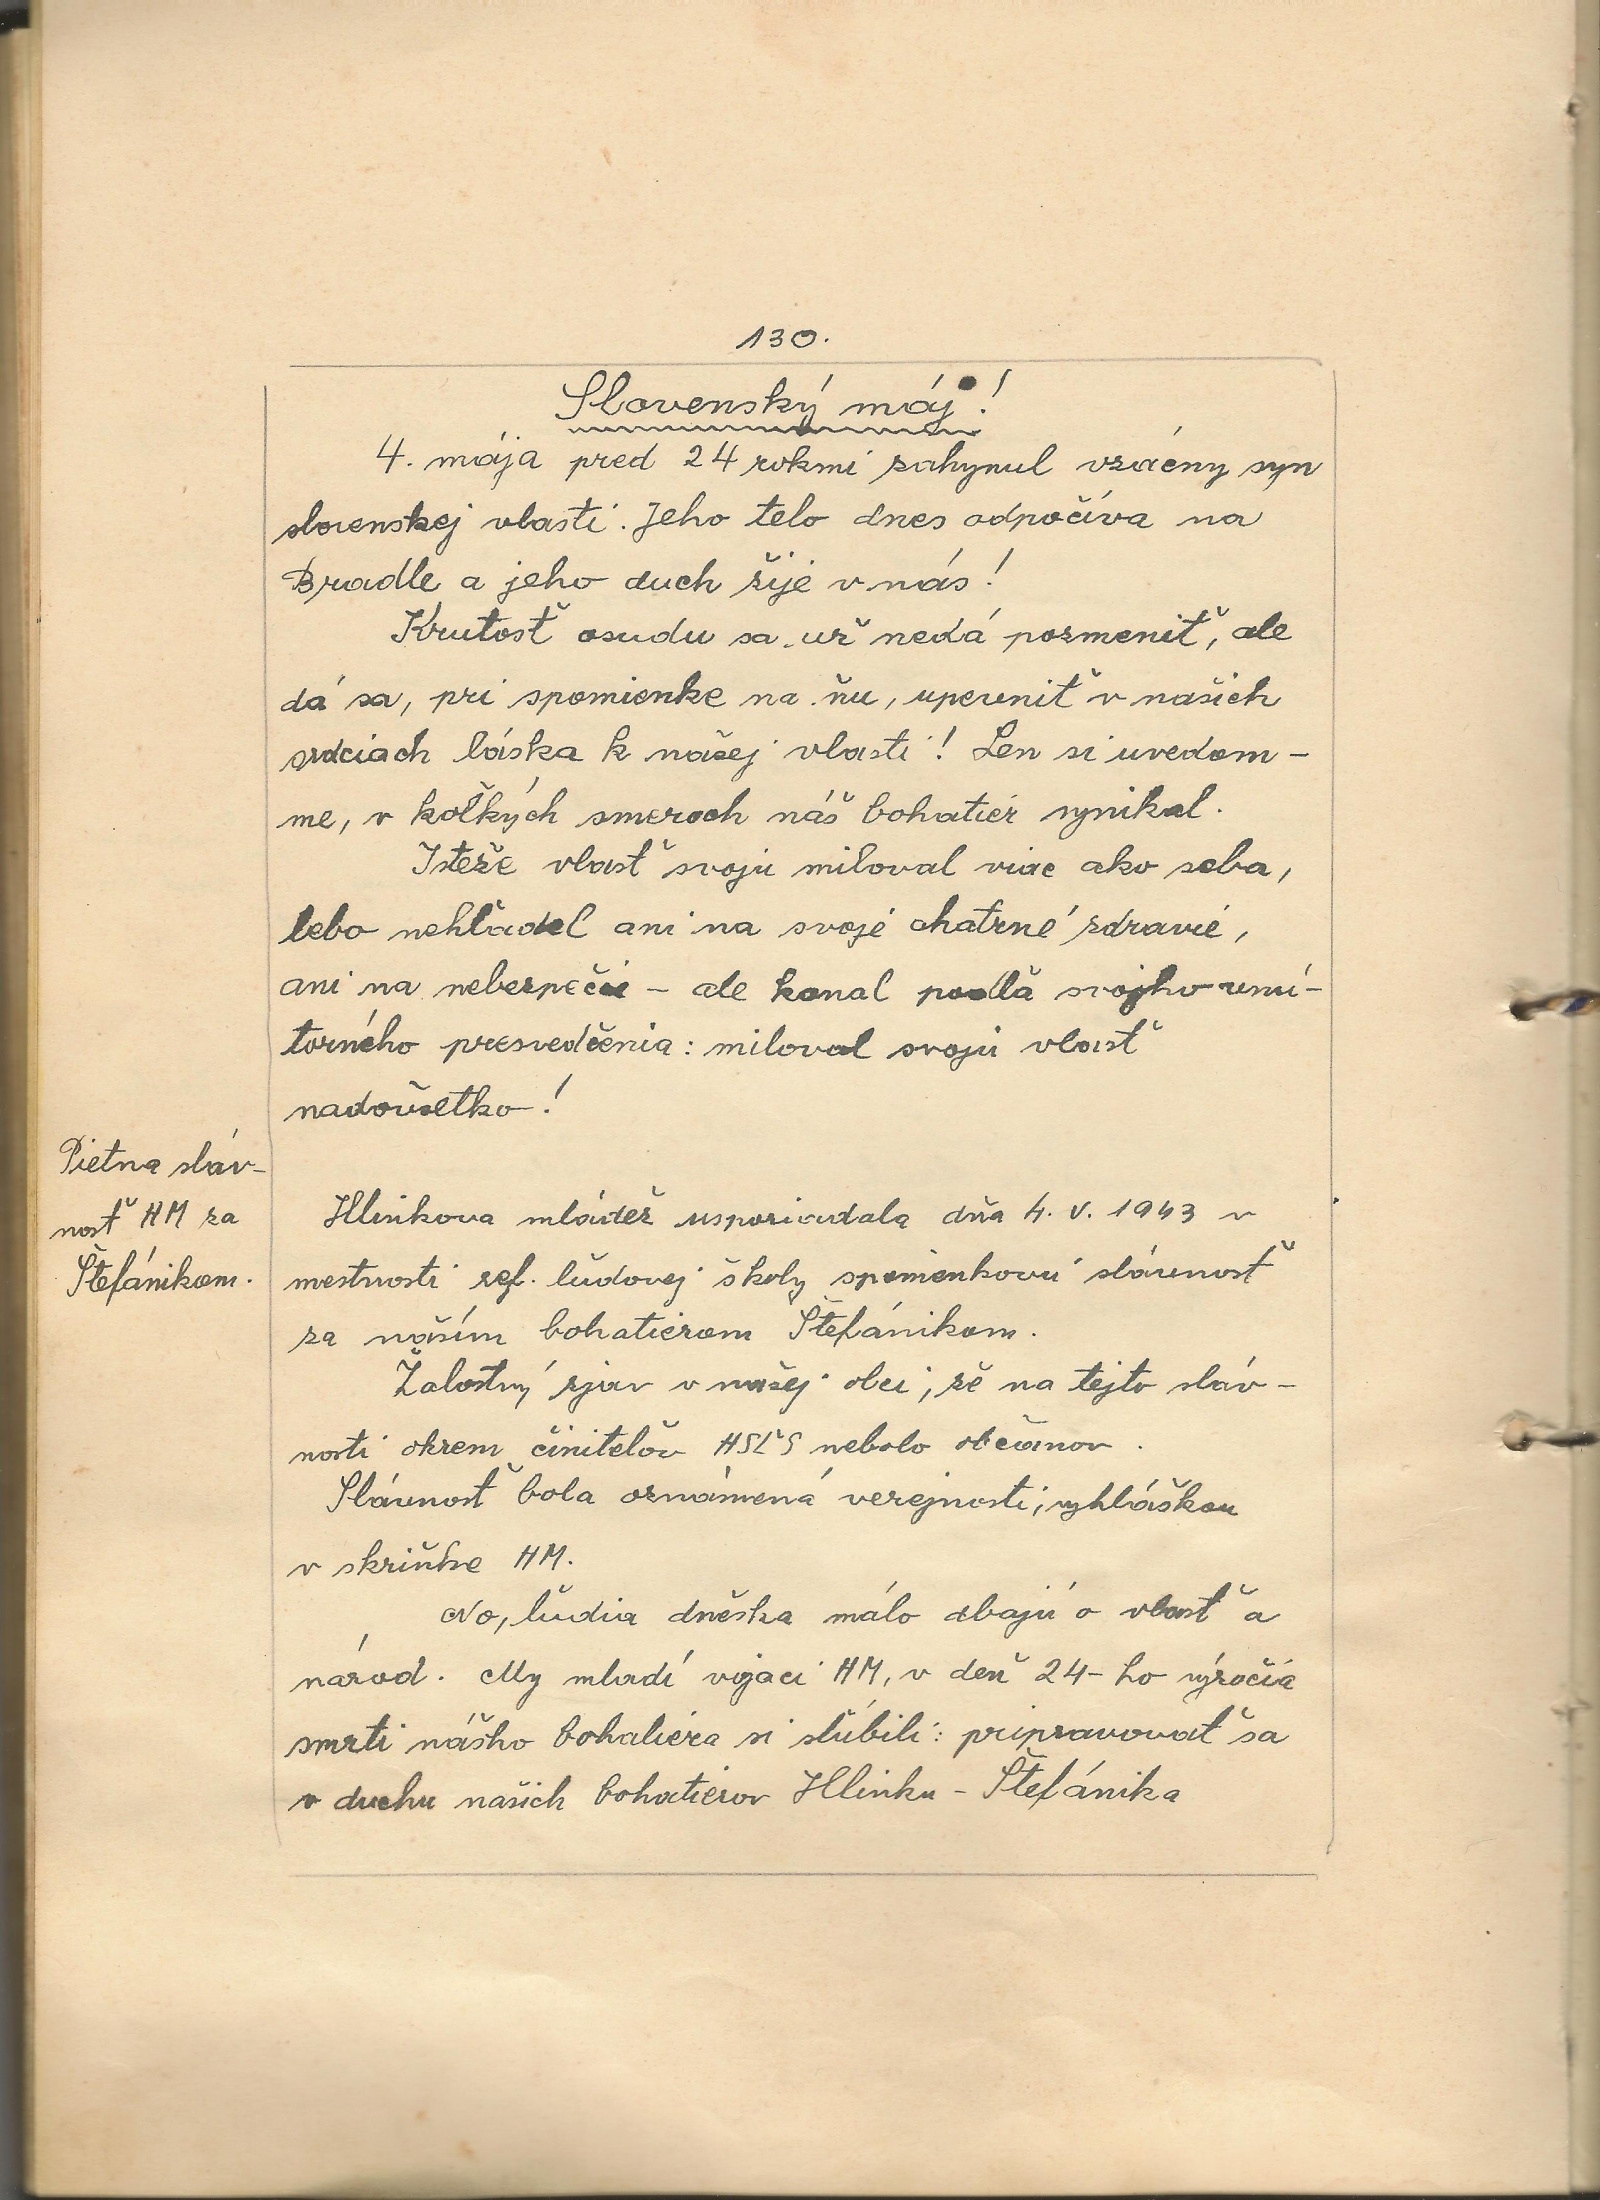 130.
Slovenský máj!
4. mája pred 24 rokmi zahynul vzácny syn
slovenskej vlasti. Jeho telo dnes odpočíva na
Bradle a jeho duch žije v nás!
Krutosť osudu sa už nedá pozmeniť, ale
dá sa, pri spomienke na ňu, upevniť v našich
srdciach láska k našej vlasti! Len si uvedom-
me, v koľkých smeroch náš bohatier vynikal.
Isteže vlasť svoju miloval viac ako seba,
lebo nehľadel ani na svoje chatrné zdravie,
ani na nebezpečie – ale konal podľa svojho vnú-
torného presvedčenia: miloval svoju vlasť
nadovšetko!
Pietna sláv-
nosť HM za
Štefánikom.
Hlinkova mládež usporiadala dňa 4. V. 1943 v
mestnosti ref. ľudovej školy spomienkovú slávnosť
za naším bohatierom Štefánikom.
Žalostný zjav v našej obci, že na tejto sláv-
nosti okrem činiteľov HSĽS nebolo občanov.
Slávnosť bola oznámená verejnosti, vyhláškou
v skriňke HM.
No, ľudia dneška málo dbajú o vlasť a
národ. My mladí vojaci HM, v deň 24-ho výročia
smrti nášho bohatiera si sľúbili: pripravovať sa
v duchu našich bohatierov Hlinku – Štefánika